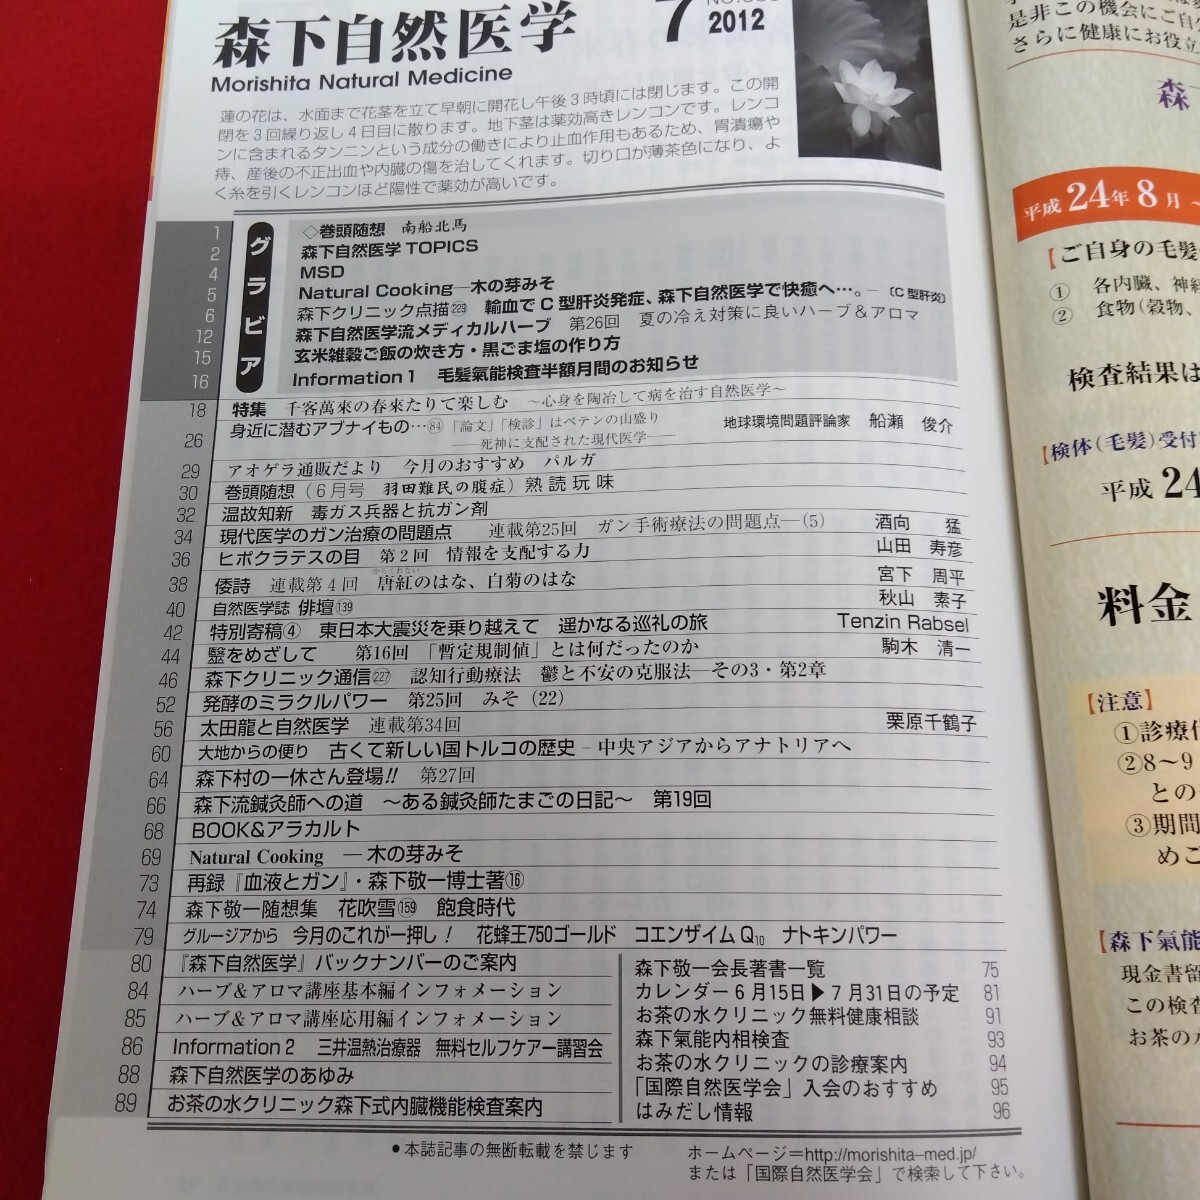 森下自然医学
7
2012
Morishita Natural Medicine
蓮の花は、水面まで花茎を立て早朝に開花し午後3時頃には閉じます。この開
閉を3回繰り返し4日目に散ります。地下茎は薬効高きレンコンです。レンコ
ンに含まれるタンニンという成分の働きにより止血作用もあるため、胃潰瘍や
痔、産後の不正出血や内臓の傷を治してくれます。切り口が薄茶色になり、よ
く糸を引くレンコンほど陽性で薬効が高いです。
グラビア
1 ◇巻頭随想 南船北馬
2 森下自然医学 TOPICS
4 MSD
5 Natural Cooking―木の芽みそ
6 森下クリニック点描229 輸血でC型肝炎発症、森下自然医学で快癒へ…。―〔C型肝炎〕
12 森下自然医学流メディカルハーブ 第26回 夏の冷え対策に良いハーブ＆アロマ
15 玄米雑穀ご飯の炊き方・黒ごま塩の作り方
16 Information 1 毛髪氣能検査半額月間のお知らせ
18 特集 千客萬來の春來たりて楽しむ ～心身を陶冶して病を治す自然医学～
26 身近に潜むアブナイもの…84「論文」「検診」はペテンの山盛り
――死神に支配された現代医学―― 地球環境問題評論家 船瀬 俊介
29 アオゲラ通販だより 今月のおすすめ パルガ
30 巻頭随想（6月号 羽田難民の腹症）熟読玩味
32 温故知新 毒ガス兵器と抗ガン剤
34 現代医学のガン治療の問題点 連載第25回 ガン手術療法の問題点―(5) 酒向 猛
36 ヒポクラテスの目 第2回 情報を支配する力 山田 寿彦
38 倭詩 連載第4回 唐紅のはな、白菊のはな 宮下 周平
からくれない
40 自然医学誌 俳壇139 秋山 素子
42 特別寄稿④ 東日本大震災を乗り越えて 遥かなる巡礼の旅 Tenzin Rabsel
44 毉をめざして 第16回 「暫定規制値」とは何だったのか 駒木 清一
46 森下クリニック通信227 認知行動療法 鬱と不安の克服法―その3・第2章
52 発酵のミラクルパワー 第25回 みそ（22）
56 太田龍と自然医学 連載第34回 栗原千鶴子
60 大地からの便り 古くて新しい国トルコの歴史－中央アジアからアナトリアへ
64 森下村の一休さん登場!! 第27回
66 森下流鍼灸師への道 ～ある鍼灸師たまごの日記～ 第19回
68 BOOK&アラカルト
69 Natural Cooking ―木の芽みそ
73 再録『血液とガン』・森下敬一博士著⑯
74 森下敬一随想集 花吹雪159 飽食時代
79 グルージアから 今月のこれが一押し！ 花蜂王750ゴールド コエンザイムQ10 ナトキンパワー
80 『森下自然医学』バックナンバーのご案内
84 ハーブ＆アロマ講座基本編インフォメーション
85 ハーブ＆アロマ講座応用編インフォメーション
86 Information 2 三井温熱治療器 無料セルフケアー講習会
88 森下自然医学のあゆみ
89 お茶の水クリニック森下式内臓機能検査案内
森下敬一会長著書一覧 75
カレンダー6月15日▶7月31日の予定 81
お茶の水クリニック無料健康相談 91
森下氣能内相検査 93
お茶の水クリニックの診療案内 94
「国際自然医学会」入会のおすすめ 95
はみだし情報 96
●本誌記事の無断転載を禁じます
ホームページ＝http://morishita-med.jp/
または「国際自然医学会」で検索して下さい。
是非この機会にご自
さらに健康にお役立
森
平成24年8月～
【ご自身の毛髪
① 各内臓、神経
② 食物（穀物、
検査結果は
【検体（毛髪）受付
平成24
料金
【注意】
①診療代
②8～9
との
③期間
めご
【森下氣能
現金書留
この検査
お茶の水